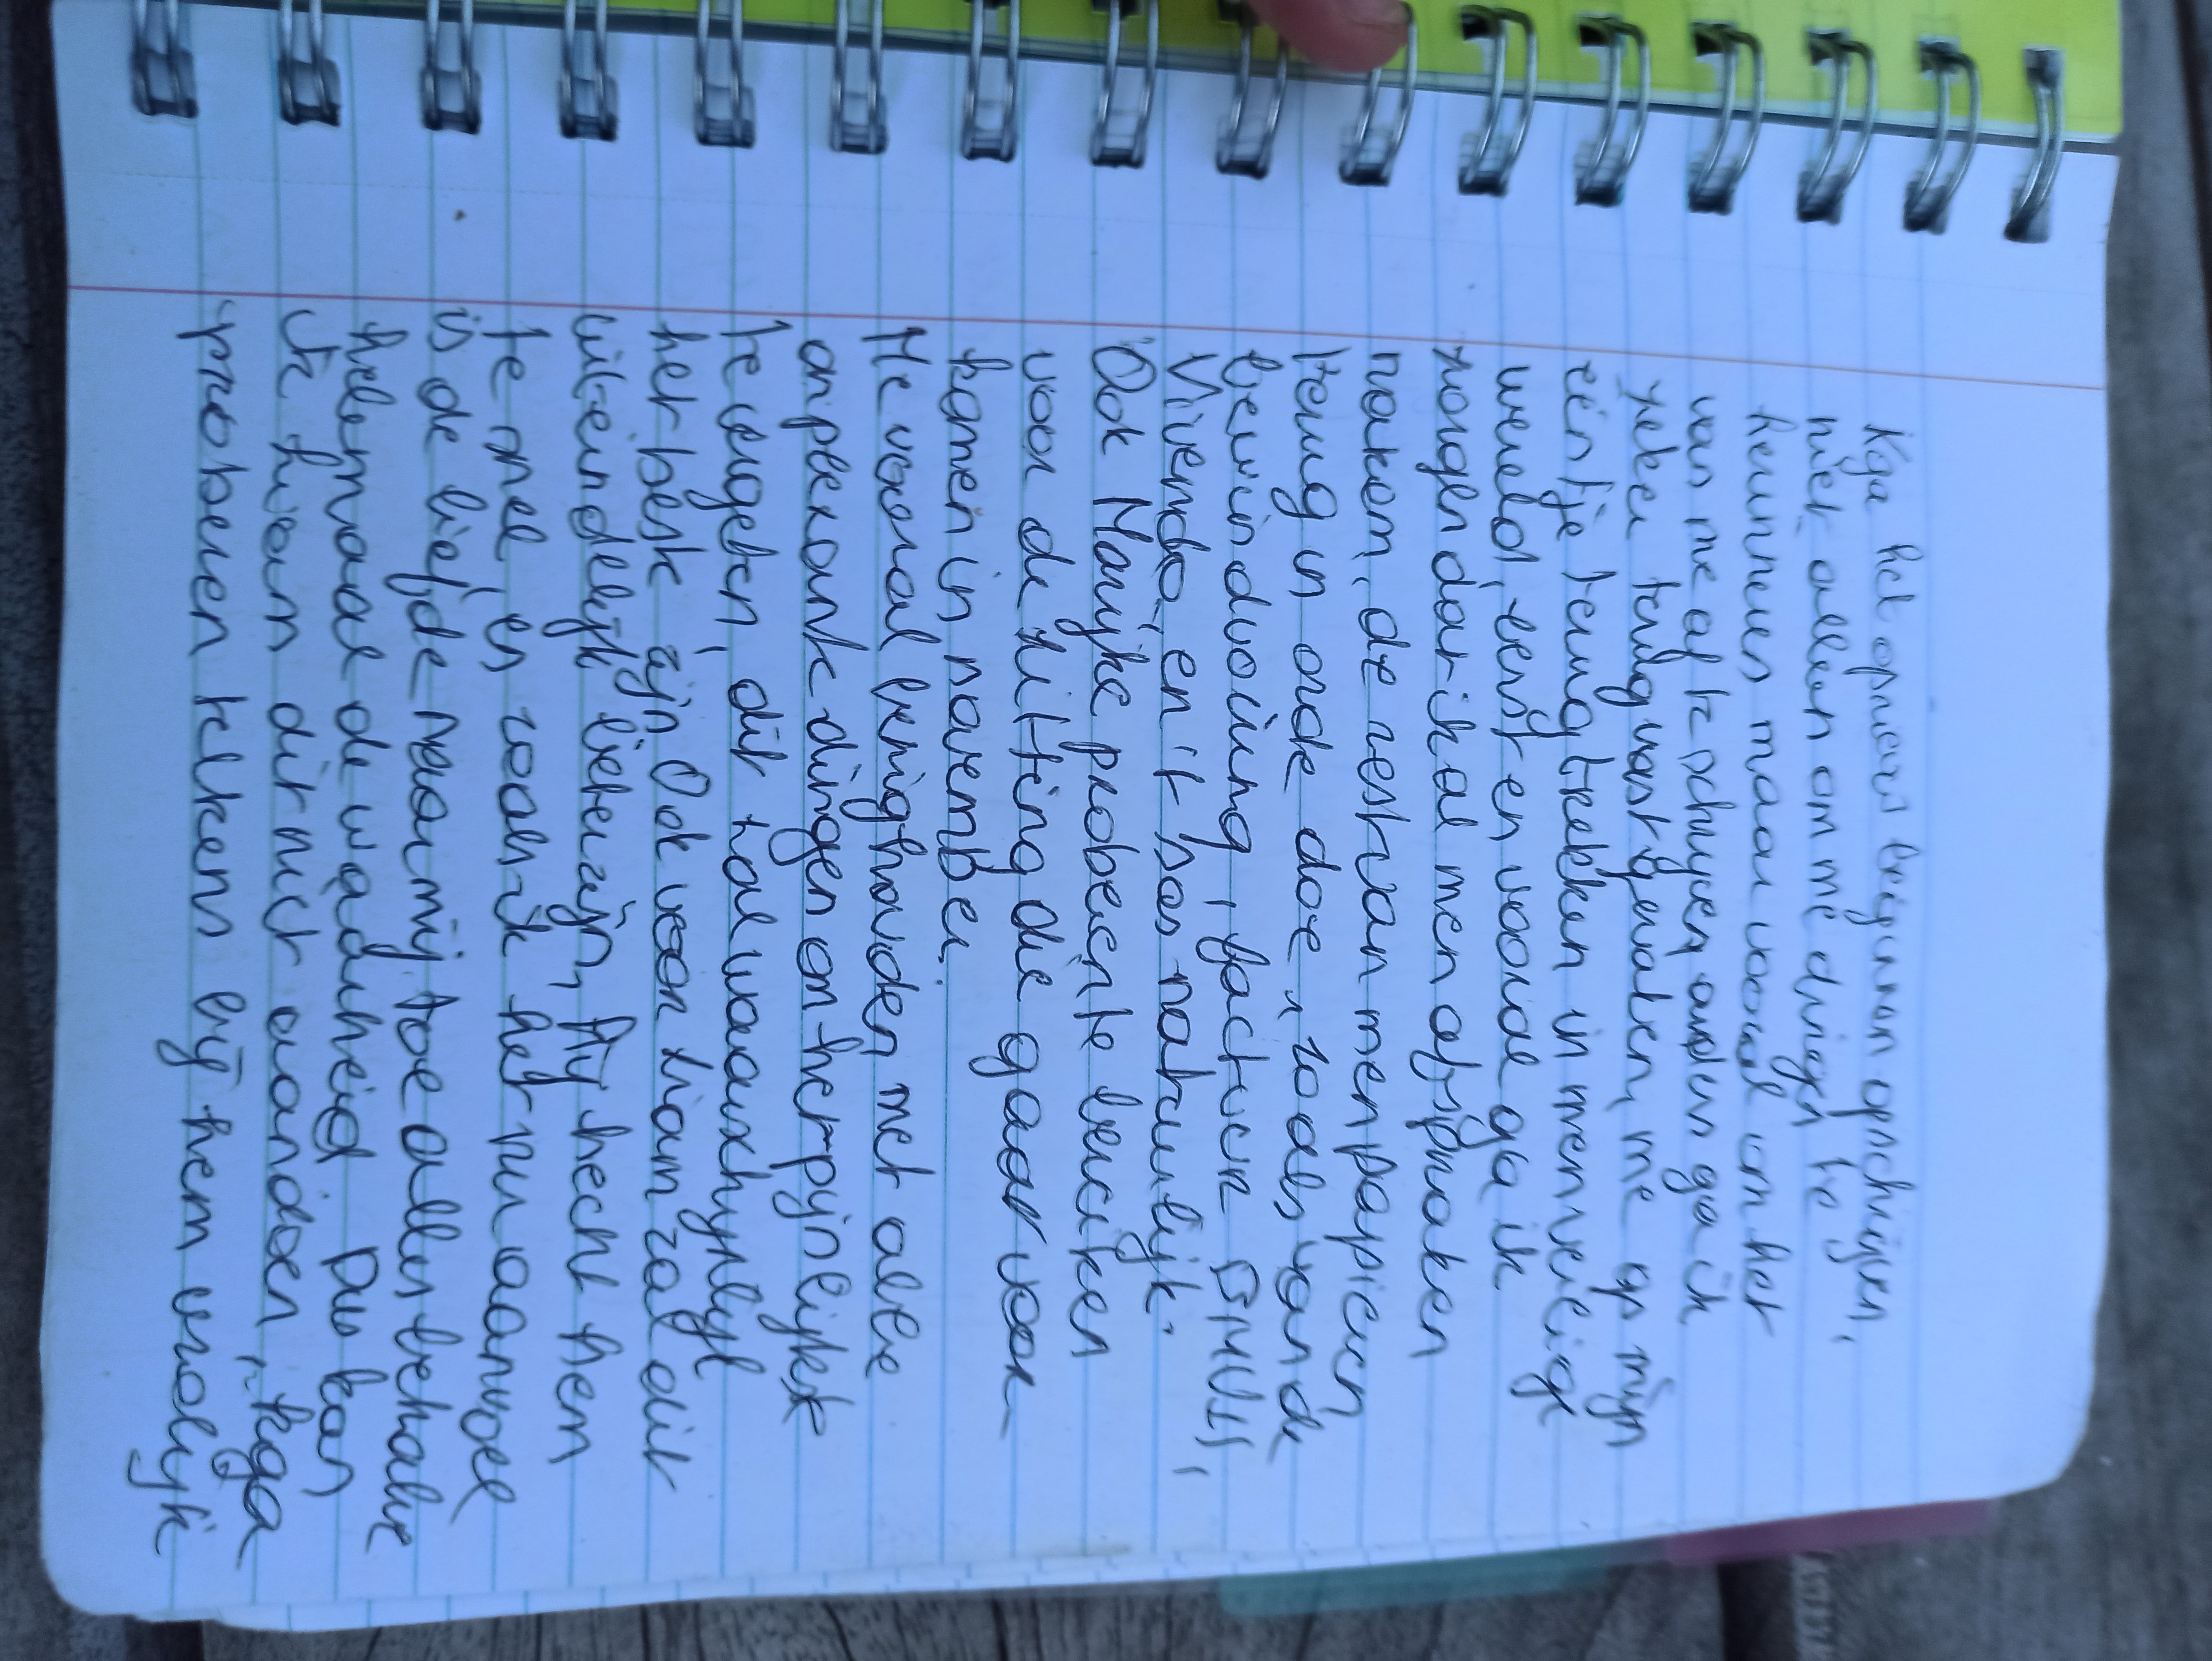 Kga het opnieuw beginnen opschrijven,
niet alleen om me dingen te
herinneren maar vooral om het
van me af te schrijven anders ga ik
zeker terug vast geraken, me op mijn
eentje terug trekken in men veilige
wereld, eerst en vooral ga ik
zorgen dat ik al men afspraken
maken, de rest van men papieren
terug in orde doe, zoals van de
bewindvoering, factuur SMUTS,
Vivendo, en 't bos natuurlijk.
Ook Marijke proberen te bereiken
voor de zitting die gaat voor-
komen in november.
Me vooral bezighouden met alle
onplezante dingen om het pijnlijkst
te vergeten, dit zal waarschijnlijk
het beste zijn Ook voor Liam zal dit
uiteindelijk beter zijn, hij hecht hem
te snel, en zoals ik het nu aanvoel
is de liefde naar mij toe alles behalve
helemaal de waarheid Dus kan
ik Liam dit niet aandoen, kga
proberen telkens bij hem vrolijk